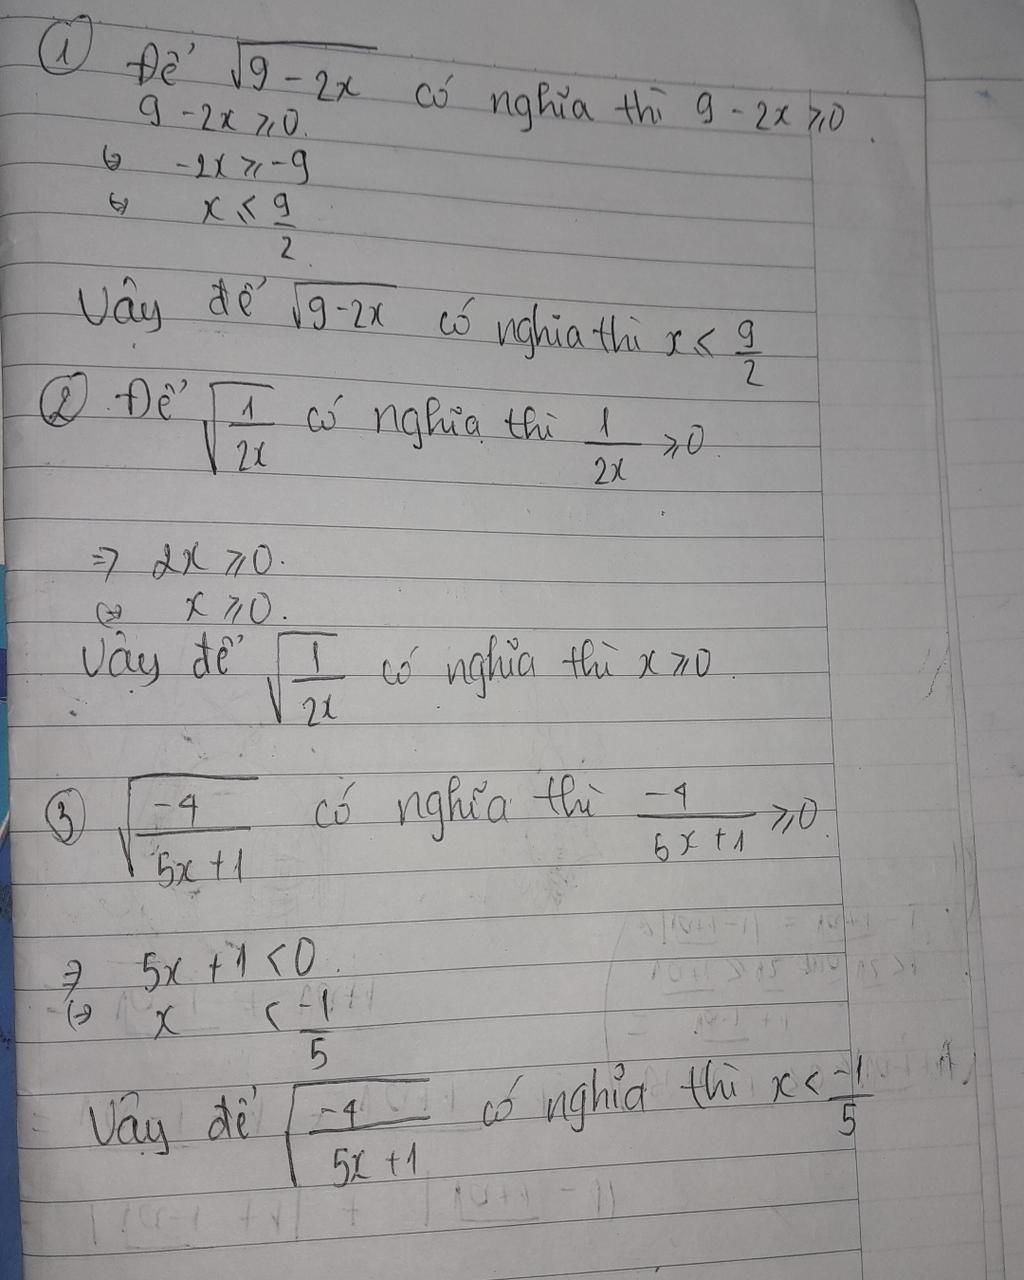 ① Để √(9 - 2x) có nghĩa thì 9 - 2x ⩾ 0.
9 - 2x ⩾ 0.
⇔ -2x ⩾ -9
⇔ x ⩽ 9/2.
Vậy để √(9-2x) có nghĩa thì x ⩽ 9/2
② Để √(1/2x) có nghĩa thì 1/2x ⩾ 0.
⇒ 2x ⩾ 0.
⇔ x ⩾ 0.
Vậy để √(1/2x) có nghĩa thì x ⩾ 0.
③ √(-4/5x+1) có nghĩa thì -4/5x+1 ⩾ 0.
⇒ 5x + 1 < 0.
⇔ x < -1/5
Vậy để √(-4/5x+1) có nghĩa thì x < -1/5